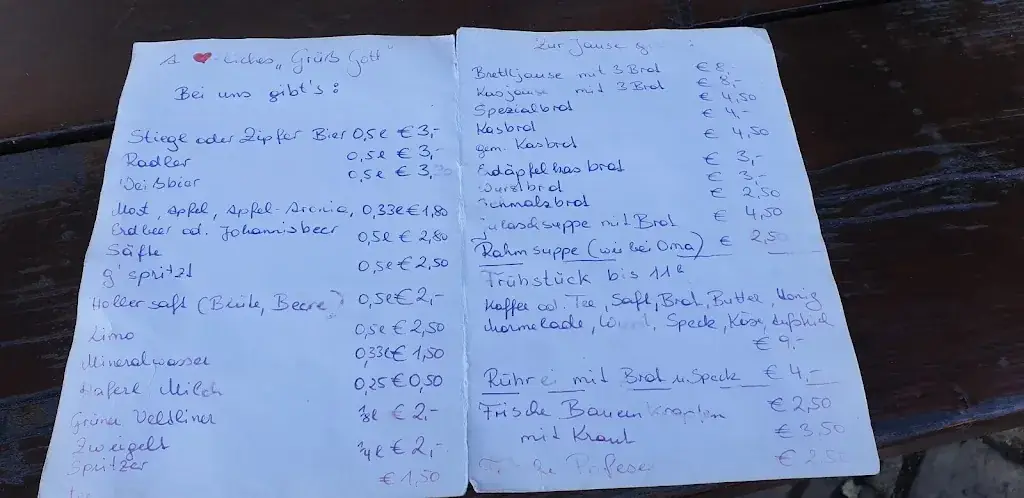 A ❤-liches „Grüß Gott"
Bei uns gibt's:
Stiegl oder Zipfer Bier 0,5l € 3,-
Radler 0,5l € 3,-
Weißbier 0,5l € 3,
Most, Apfel, Apfel-Aronia, 0,33l € 1,80
Erdbeer od. Johannisbeer
Säfte 0,5l € 2,80
g'spritzt 0,5l € 2,50
Hollersaft (Blüte, Beere) 0,5l € 2,-
Limo 0,5l € 2,50
Mineralwasser 0,33l € 1,50
Haferl Milch 0,25 € 0,50
Grüner Veltliner € 2,-
Zweigelt € 2,-
Spritzer € 1,50
Zur Jause
Brettljause mit 3 Brot € 8,-
Kasjause mit 3 Brot € 8,-
Spezialbrot € 4,50
Kasbrot € 4,-
gem. Kasbrot € 4,50
Erdäpfelkas brot € 3,-
Wurstbrot € 3,-
Schmalzbrot € 2,50
gulaschsuppe mit Brot € 4,50
Rahmsuppe (wie bei Oma) € 2,50
Frühstück bis 11h
Kaffee od. Tee, Saft, Brot, Butter, Honig
Marmelade, Speck, Käse,
€ 9,-
Rührei mit Brot u. Speck € 4,-
Frische Bauernkrapfen € 2,50
mit Kraut € 3,50
€ 2,50